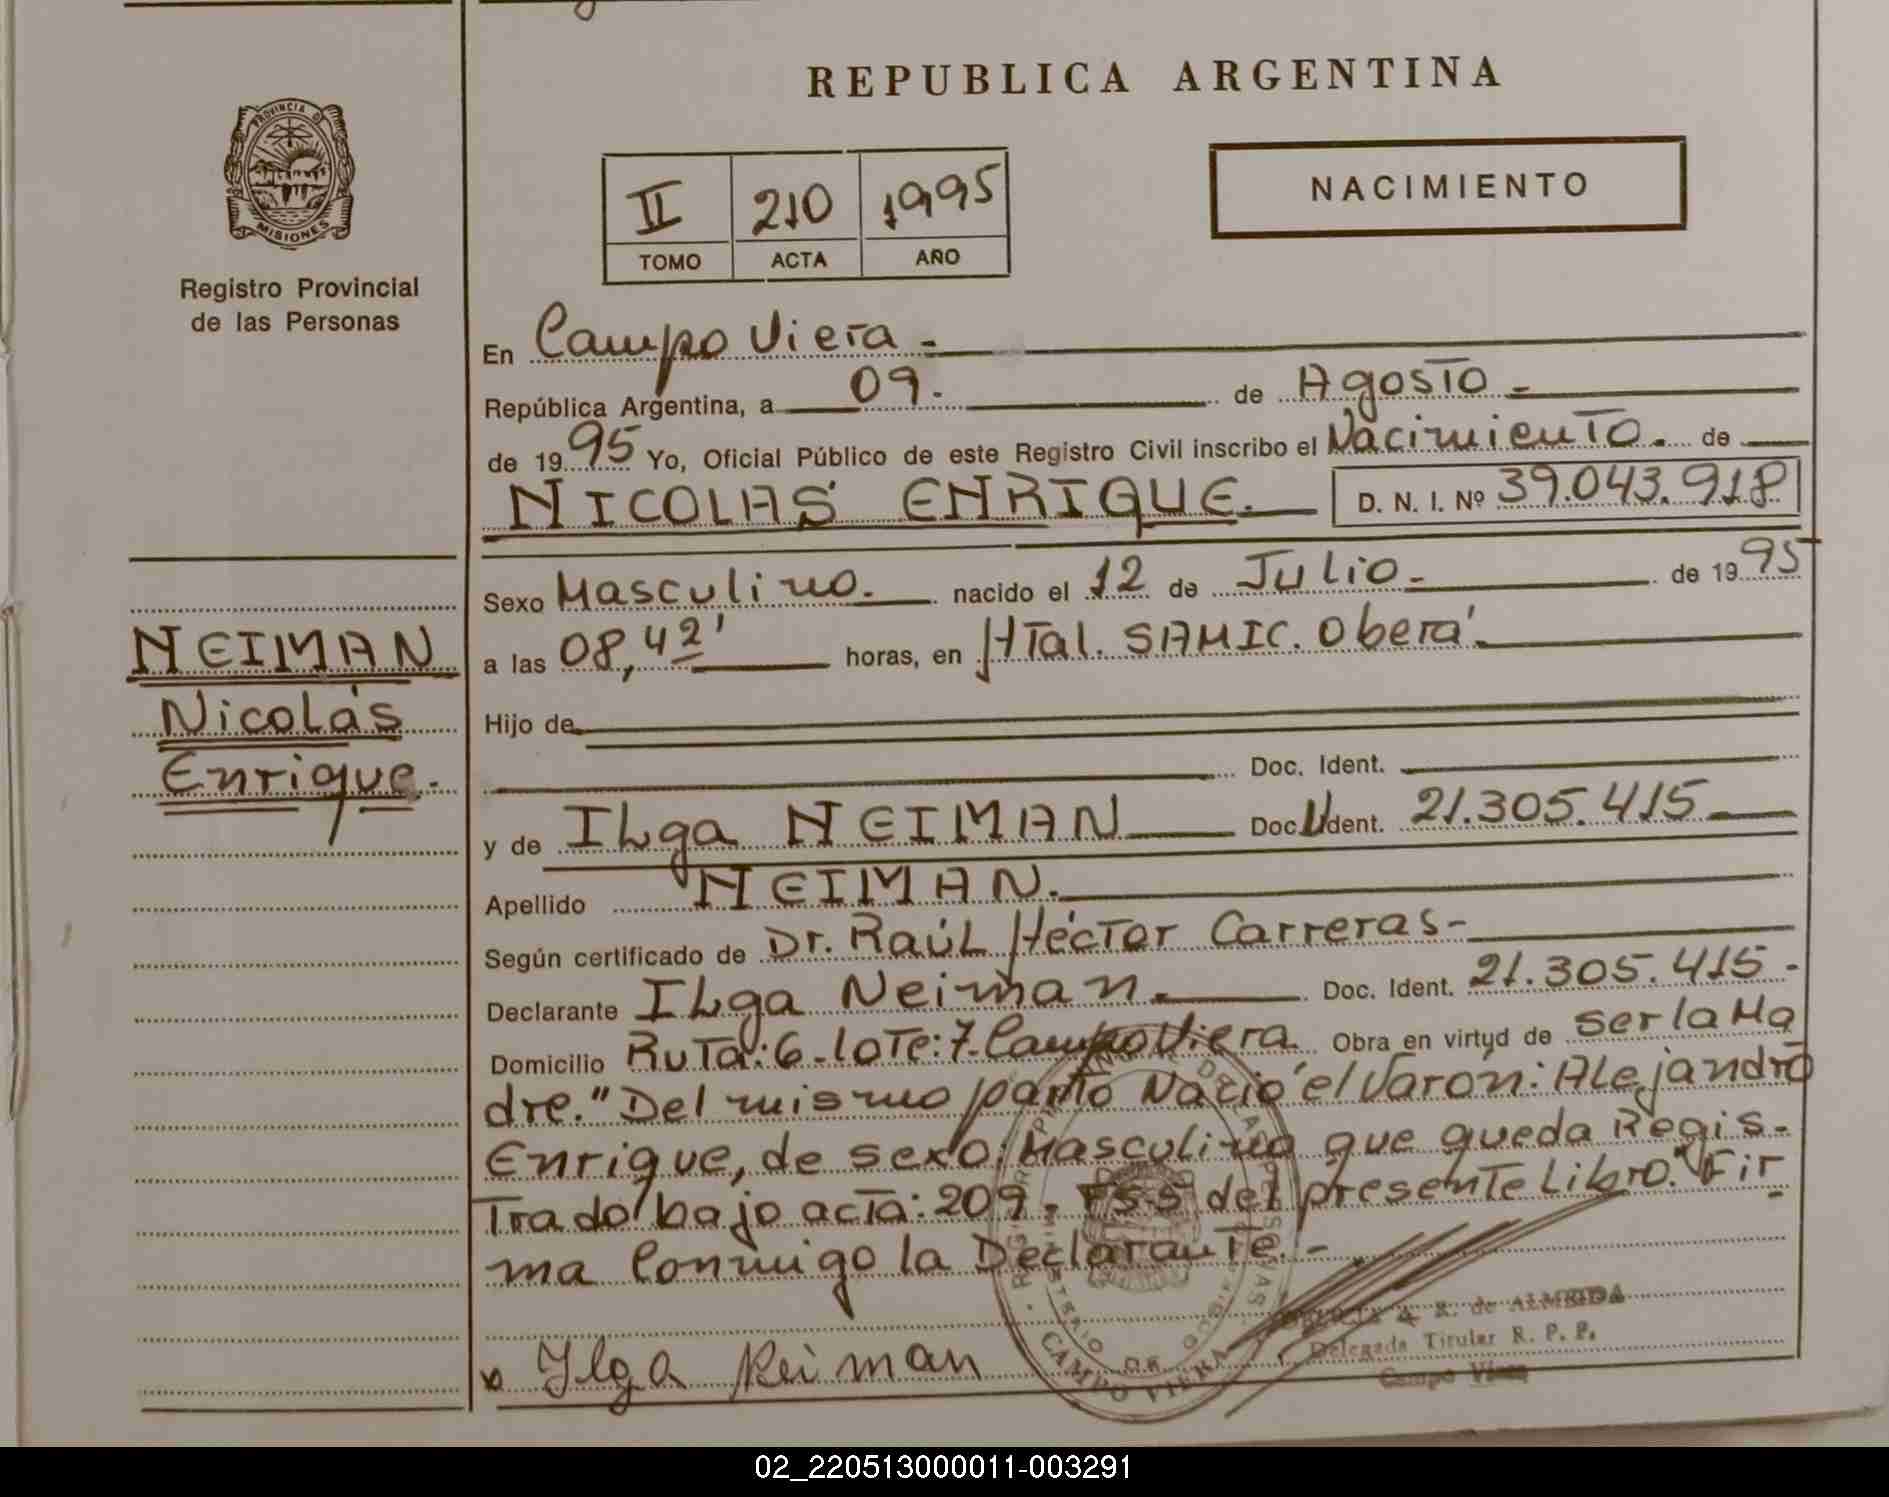 REPUBLICA ARGENTINA
PROVINCIA D
MISIONES
Registro Provincial
de las Personas
II 210 1995
TOMO ACTA AÑO
NACIMIENTO
En Campo Viera.
República Argentina, a 09. de Agosto.
de 1995 Yo, Oficial Público de este Registro Civil inscribo el Nacimiento. de
NICOLAS ENRIQUE. D. N. I. Nº 39.043.918
Sexo Masculino. nacido el 12 de Julio. de 1995
a las 08,42' horas, en Htal. SAMIC. Oberá.
Hijo de
Doc. Ident.
y de ILga NEIMAN Doc. U Ident. 21.305.415
Apellido NEIMAN.
Según certificado de Dr. Raúl Héctor Carreras-
Declarante ILga Neiman. Doc. Ident. 21.305.415-
Domicilio Ruta:6-lote:7-Campo Viera. Obra en virtud de ser la Ma
dre." Del mismo parto Nació el Varón: Alejandro
Enrique, de sexo: Masculino que queda Regis-
trado bajo acta: 209. Fss del presente Libro." Fir
ma Conmigo la Declarante.-
NEIMAN
Nicolás
Enrique.
Ilga Neiman
A. R. de ALMEIDA
Delegada Titular R. P. P.
Campo Viera
CAMPO VIERA
02_220513000011-003291